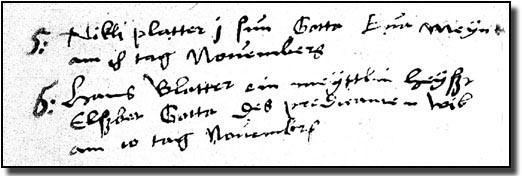 5: Nikli platter j sun Gotta Eua Meyn
am 8 tag Nouembers
6: Hans Blatter ein meyttlin heyßt
Elsbet Gotta des predicanten wib
am 10 tag Nouembers